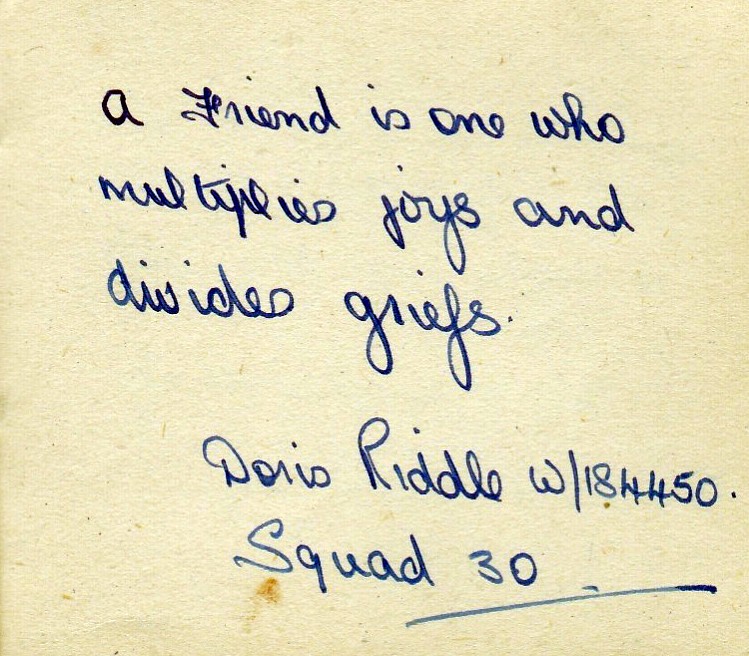 a Friend is one who
multiplies joys and
divides griefs.
Doris Riddle W/184450.
Squad 30